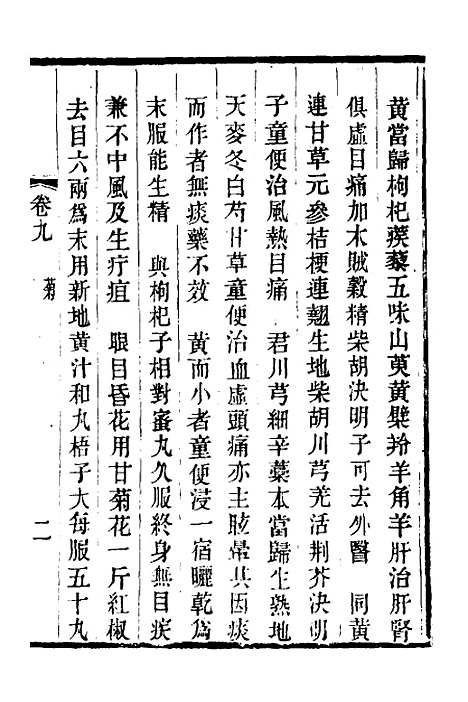 黃當歸枸杞蒺藜五味山萸黃檗羚羊角羊肝治肝腎
俱虛目痛加木賊穀精柴胡決明子可去外醫　同黃
連甘草元參桔梗連翹生地柴胡川芎羌活荆芥決明
子童便治風熱目痛　君川芎細辛藁本當歸生熟地
天麥冬白芍甘草童便治血虛頭痛亦主眩暈其因痰
而作者無痰藥不效　黃而小者童便浸一宿曬乾爲
末服能生精　與枸杞子相對蜜丸久服終身無目疾
兼不中風及生疔疽　眼目昏花用甘菊花一斤紅椒
去目六兩爲末用新地黃汁和丸梧子大每服五十九
卷九　菊　二